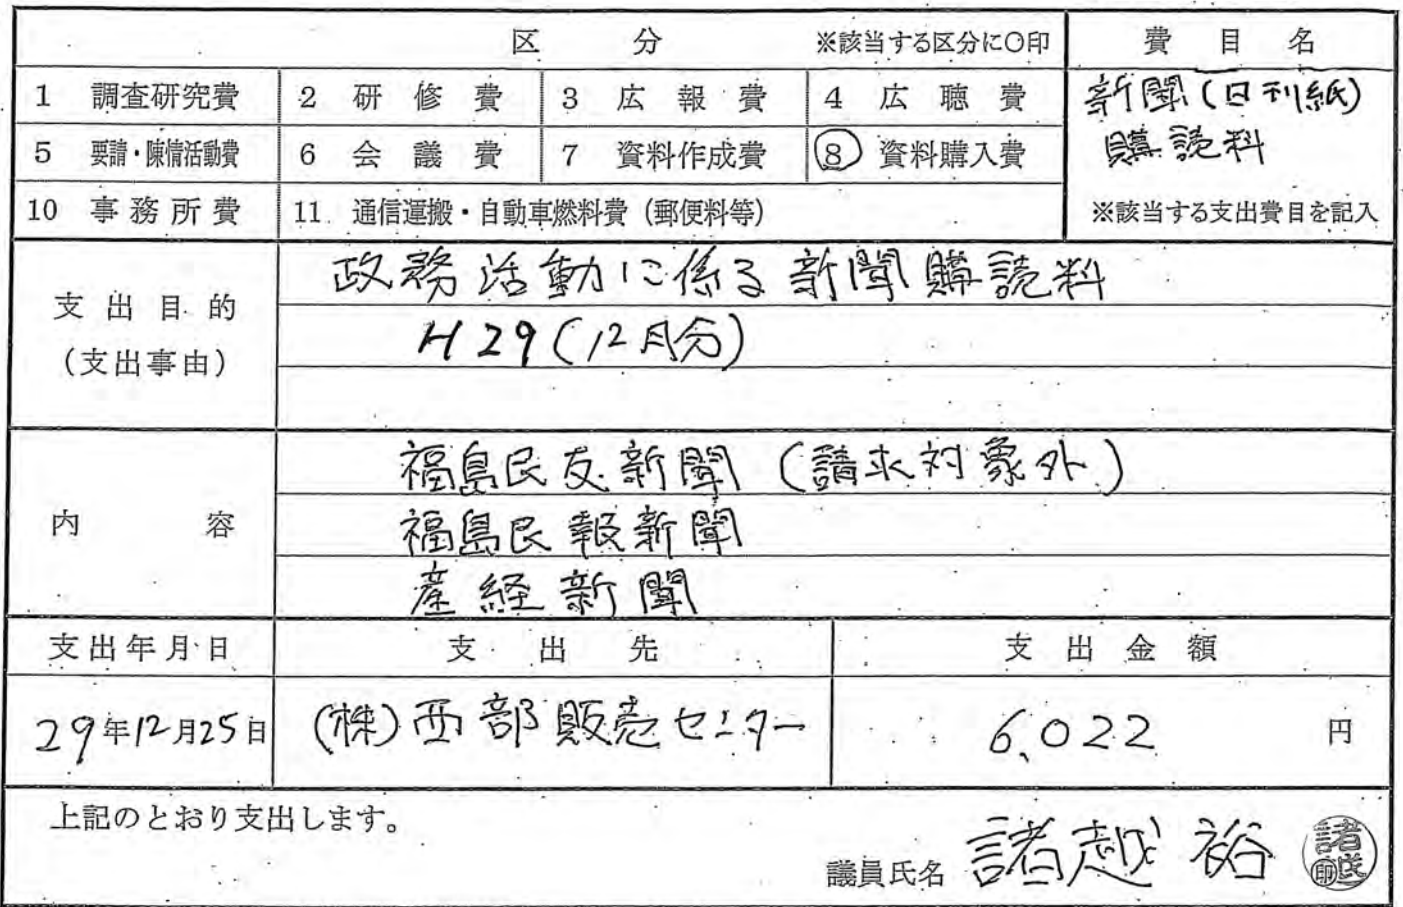 区 分 ※該当する区分に○印 費 目 名
1 調査研究費 2 研 修 費 3 広 報 費 4 広 聴 費 新聞(日刊紙)
5 要請・陳情活動費 6 会 議 費 7 資料作成費 ⑧ 資料購入費 購読料
10 事務所費 11 通信運搬・自動車燃料費(郵便料等) ※該当する支出費目を記入
支出目的 政務活動に係る新聞購読料
(支出事由) H29(12月分)
福島民友新聞(請求対象外)
内 容 福島民報新聞
産経新聞
支出年月日 支 出 先 支 出 金 額
29年12月25日 (株)西部販売センター 6,022 円
上記のとおり支出します。
議員氏名 諸越 裕 諸越 印